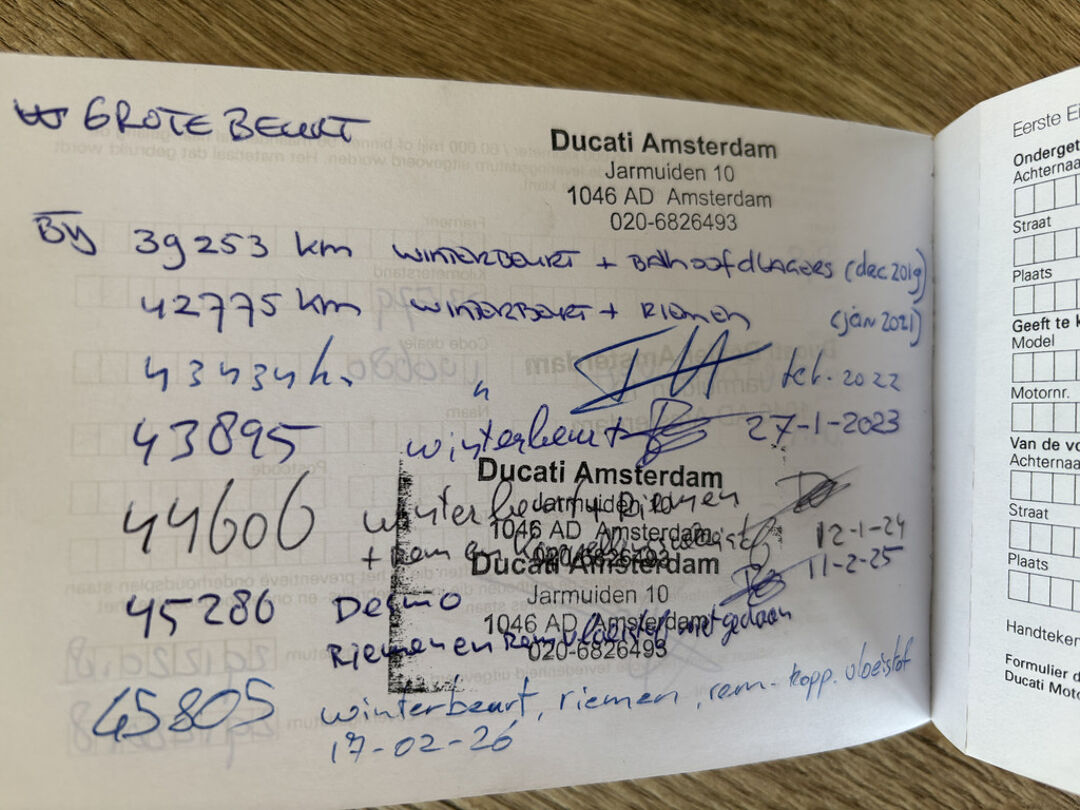 GROTE BEURT
Ducati Amsterdam
Jarmuiden 10
1046 AD Amsterdam
020-6826493
By 39253 km WINTERBEURT + BALHOOFDLAGERS (dec 2019)
42775 km WINTERBEURT + RIEMEN (jan 2021)
43434 k. " feb. 2022
43895 winterbeurt 27-1-2023
Ducati Amsterdam
44606 winterbeurt + riemen
Jarmuiden 10
1046 AD Amsterdam
+ rem en 12-1-24
020-6826493
Ducati Amsterdam
11-2-25
Jarmuiden 10
45286 Desmo
1046 AD Amsterdam
Riemen en Remvloeistof niet gedaan
020-6826493
45805 winterbeurt, riemen, rem- kopp. vloeistof
17-02-26
Eerste
Onderget
Achternaa
Straat
Plaats
Geeft te k
Model
Motornr.
Van de vo
Achternaa
Straat
Plaats
Handteken
Formulier d
Ducati Moto